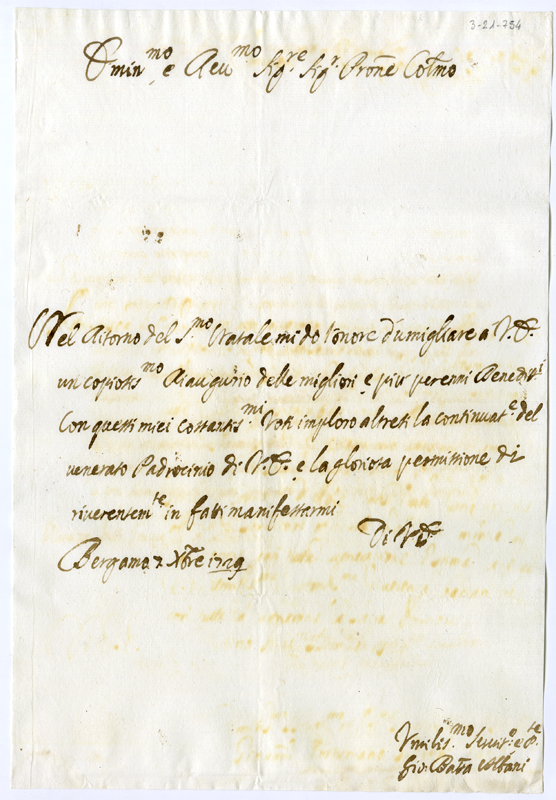 3-21-754
Emin^mo e Reu^mo Sig^re Sig^r Prone Col̃mo
Nel Ritorno del S^mo Natale mi do l'onore d'umigliare a V.E.
un copiosis^mo Riaugurio delle migliori e più perenni Benediti
Con questi miei costantis^mi Voti imploro altresi la continuat^e del
venerato Padrocinio di V.E. e la gloriosa permissione di
riverentem^te in fatti manifestarmi
Di V.E.
Bergamo 7 Xbre 1729
Umilis^mo Seruit^r e
Gio: Batta Albani